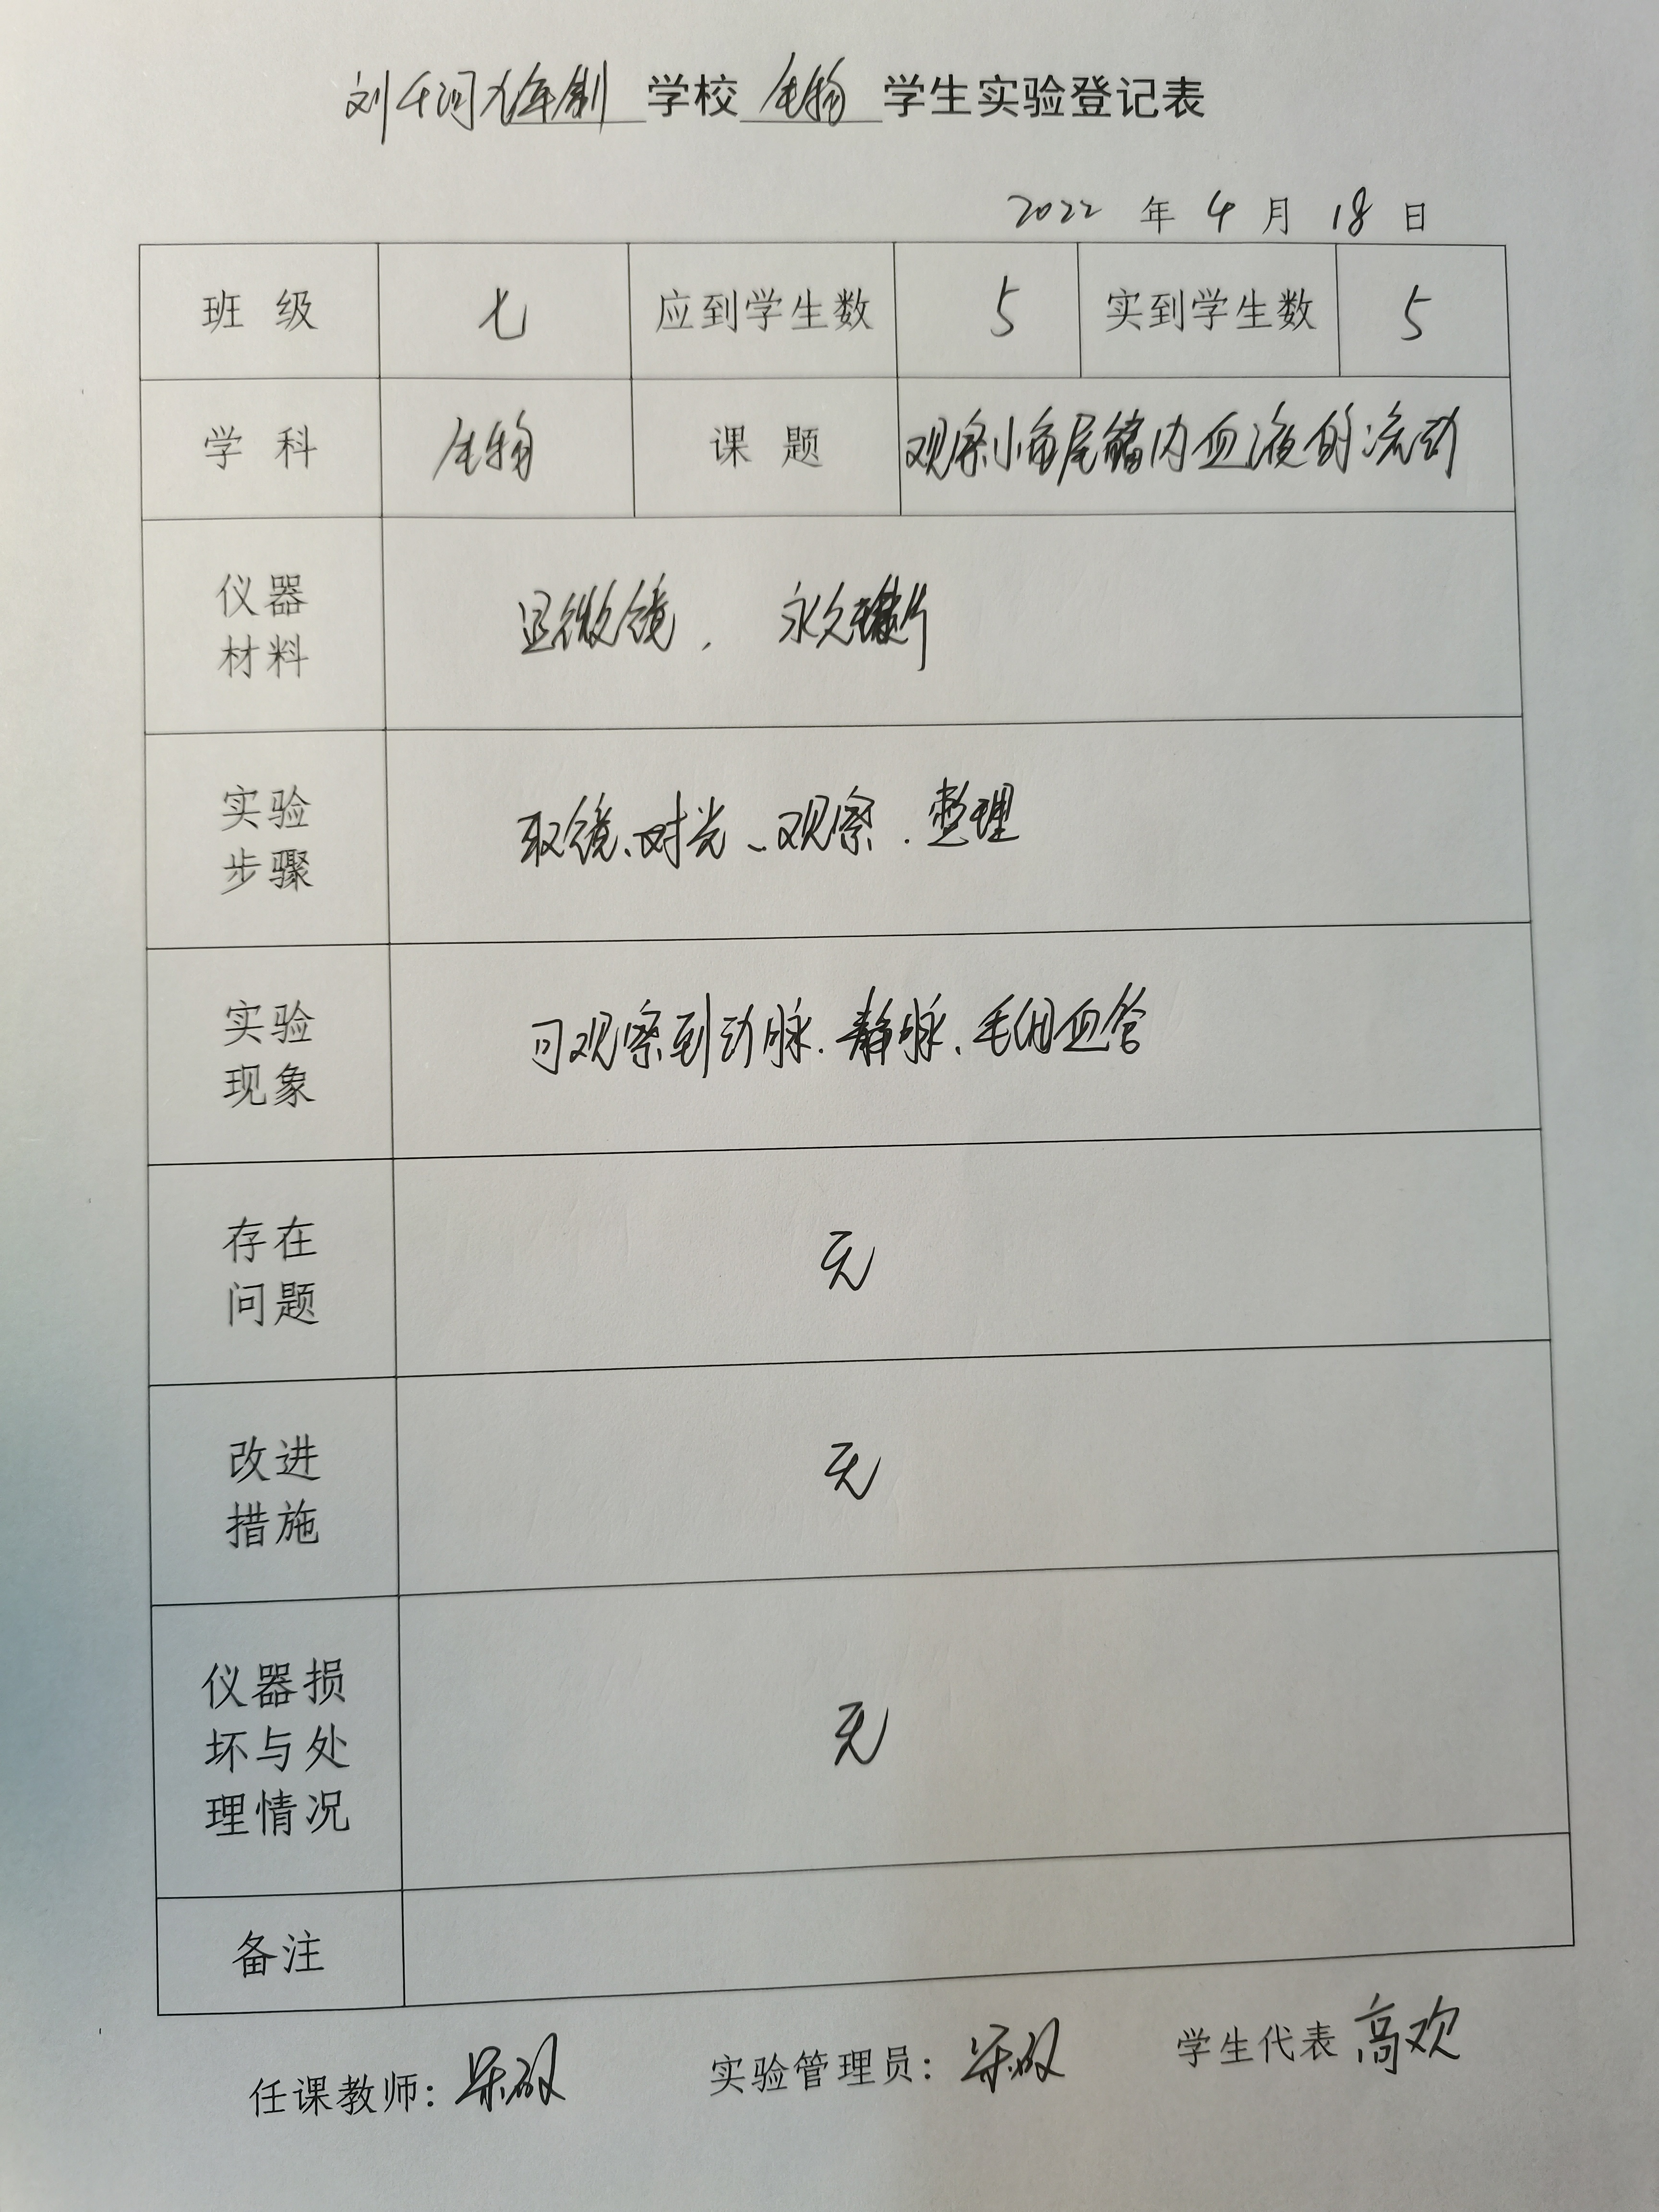 刘千河九年制 学校 生物 学生实验登记表
2022 年 4 月 18 日
班 级 七 应到学生数 5 实到学生数 5
学 科 生物 课 题 观察小鱼尾鳍内血液的流动
仪器
材料
显微镜, 永久
实验
步骤
取镜、对光、观察.整理
实验
现象
可观察到动脉.静脉、毛细血管
存在
问题
无
改进
措施
无
仪器损
坏与处
理情况
无
备注
任课教师: 实验管理员: 学生代表 高欢